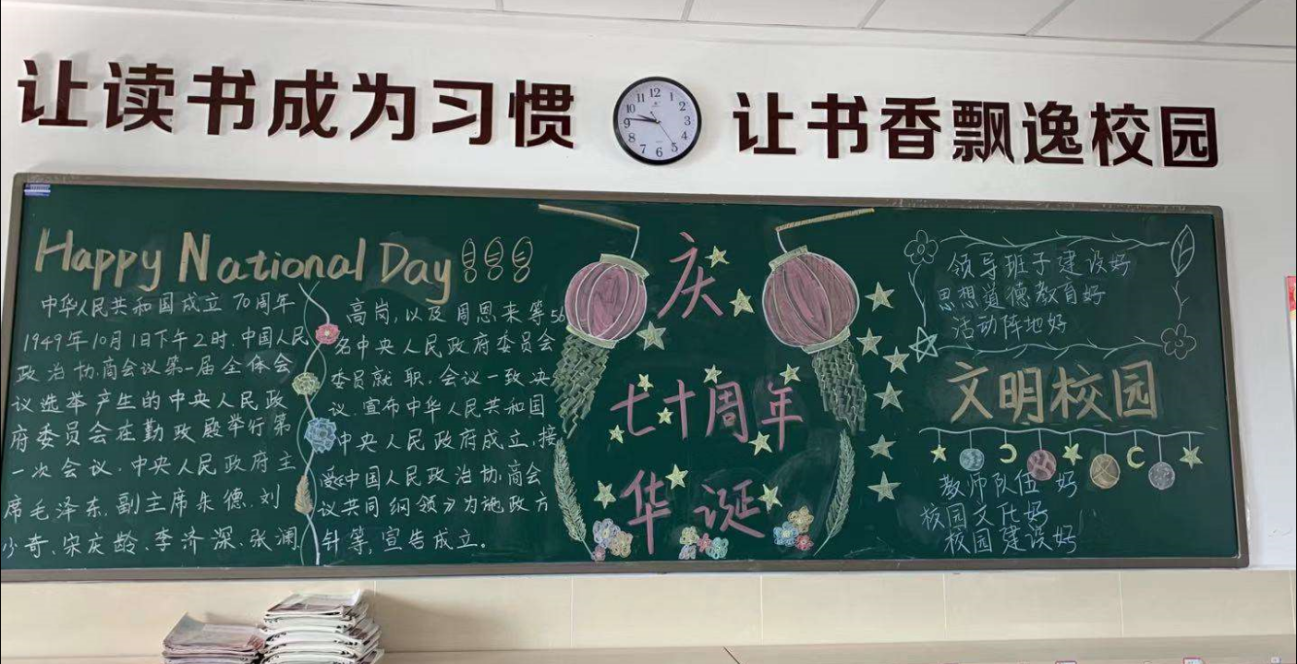 让读书成为习惯
12
1
2
3
4
5
6
7
8
9
10
11
让书香飘逸校园
Happy National Day!!!
中华人民共和国成立70周年
1949年10月1日下午2时.中国人民
政治协商会议第一届全体会
议选举产生的中央人民政
府委员会在勤政殿举行第
一次会议.中央人民政府主
席毛泽东.副主席朱德.刘
少奇.宋庆龄.李济深.张澜
高岗,以及周恩来等56
名中央人民政府委员会
委员就职.会议一致决
议.宣布中华人民共和国
中央人民政府成立.接
受《中国人民政治协商会
议共同纲领》为施政方
针等,宣告成立。
庆
七十周年
华诞
领导班子建设好
思想道德教育好
活动阵地好
文明校园
教师队伍好
校园文化好
校园建设好